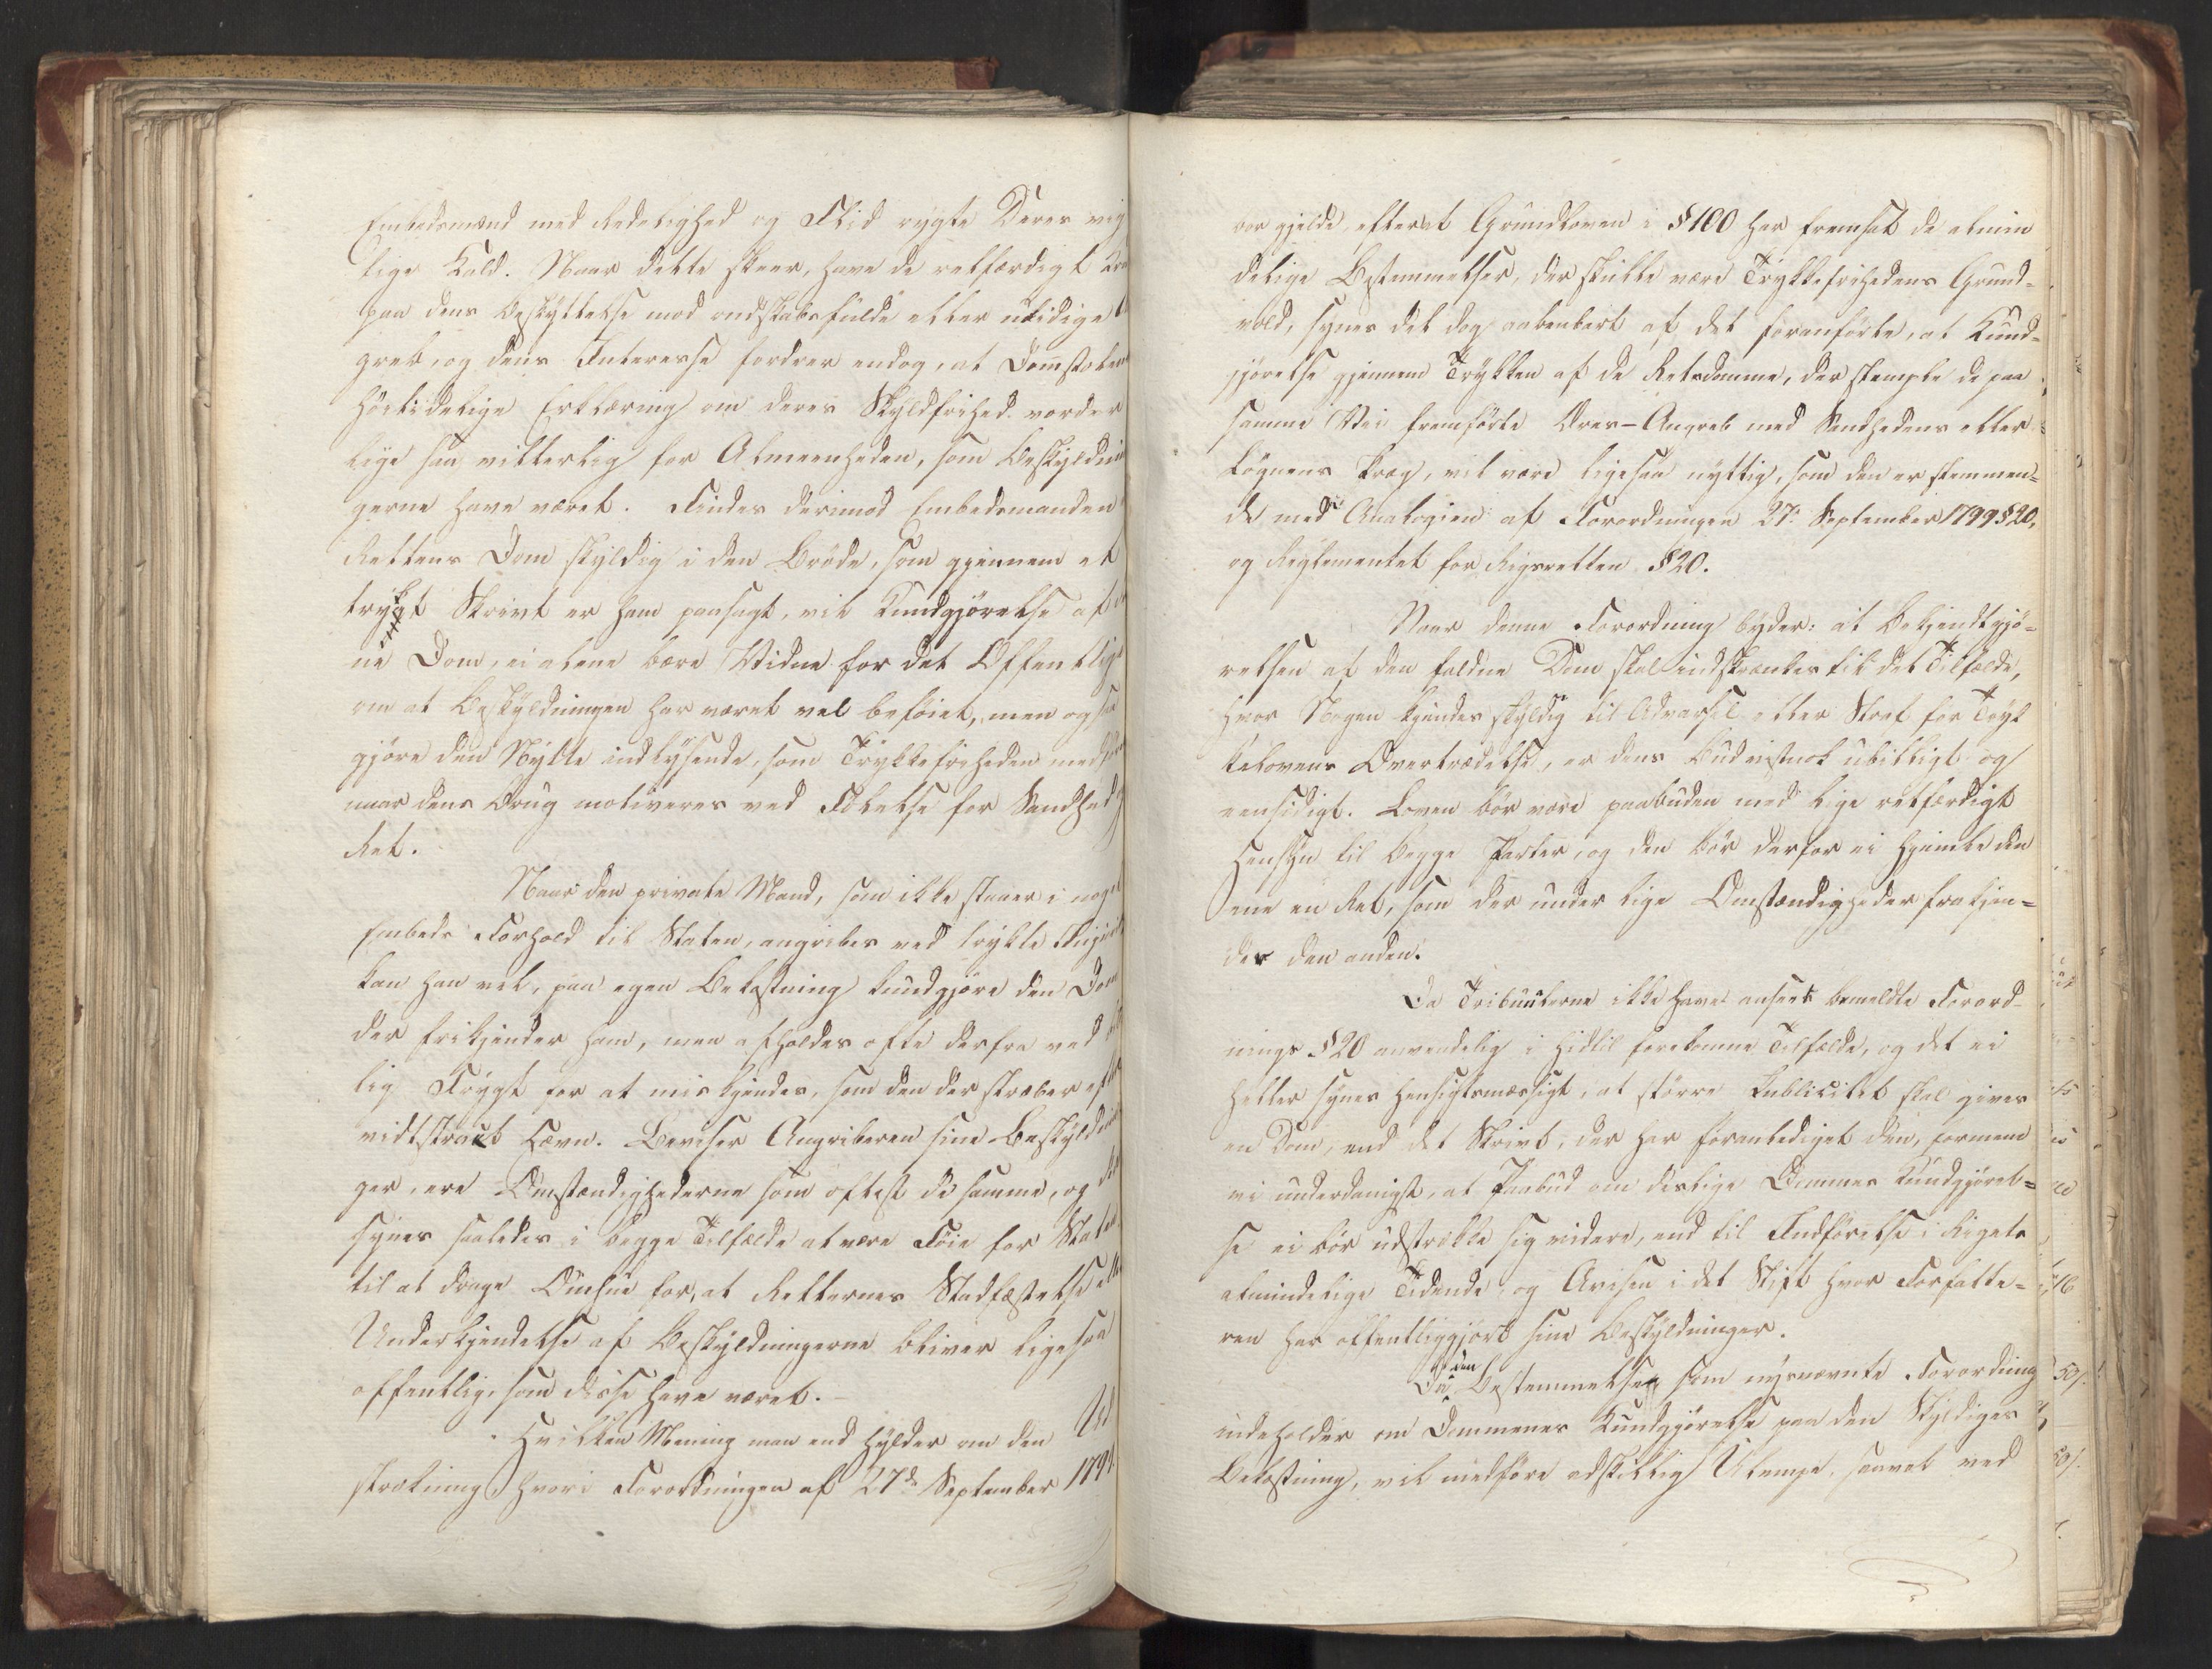 Embedsmænd med Redelighed og Flid rygte Deres vig
tige Kald. Naar dette skeer, have de retfærdigt Kra
paa dens Beskyttelse mod ondskabsfulde eller utidige
greb, og dens Interesse fordrer endog, at Domstolen
høitidelige Erklæring om deres Skyldfrihed vorder
lige saa vitterlig for Almeenheden, som Beskyldnin
gerne have været. Findes derimod Embedsmanden
Rettens Dom skyldig i den Brøde, som gjennem et
trykt Skrivt er ham paasagt, vil Kundgjørelse af
ne Dom, ei alene bære Vidne for det Offentlige
om at Beskyldningen har været vel beføiet, men ogsaa
gjøre den Nytte indlysende, som Trykkefriheden medfør
naar dens Brug motiveres ved Følelse for Sandhed
Ret.
Naar den private Mand, som ikke staaer i noget
Embeds Forhold til Staten, angribes ved trykte Injuri
kan han vel, paa egen Bekostning kundgjøre den Dom
der frikjender ham, men afholdes ofte derfra ved
lig Frygt for at miskjendes, som den der stræber efter
vidtstrakt Hævn. Beviser Angriberen sine Beskyldnin
ger, ere Omstændighederne som oftest de samme, og
synes saaledes i begge Tilfælde at være Føie for Staten
til at drage Omhue for, at Retternes Stadfæstelse eller
Underkjendelse af Beskyldningerne bliver ligesaa
offentlig, som disse have været. –
Hvilken Mening man end hylder om den Ud
strækning hvori Forordningen af 27de September 1799
bør gjelde, efterat Grundloven i § 100 har fremsat de almin
delige Bestemmelser, der skulle være Trykkefrihedens Grund-
vold, synes det dog aabenbart af det foranførte, at Kund-
gjørelse gjennem Trykken af de Retsdomme, der stemple de paa
samme Vei fremførte Æres-Angreb med Sandhedens eller
Løgnens Præg, vil være ligesaa nyttig, som den er stemmen-
de med Analogien af Forordningen 27. September 1799 § 20,
og Reglementet for Rigsretten § 20.
Naar denne Forordning byder: at Bekjendtgjø-
relsen af den faldne Dom skal indskrænkes til det Tilfælde,
hvor Nogen kjendes skyldig til Advarsel eller Straf for Tryk
kelovens Overtrædelse, er dens Bud vistnok ubilligt og
eensidigt. Loven bør være paabuden med lige retfærdigt
Hensyn til begge Parter, og den bør derfor ei hjemle den
ene en Ret, som der under lige Omstændigheder frakjen-
des den anden.
Da Tribunalerne ikke have anseet bemeldte Forord-
nings § 20 anvendelig i hidtil forekomne Tilfælde, og det ei
heller synes hensigtsmæssigt, at større Publicitet skal gives
en Dom, end det Skrivt, der har foranlediget den, formene
vi underdanigst, at Paabud om deslige Dommes Kundgjørel-
se ei bør udstrække sig videre, end til Indførelse i Rigets
almindelige Tidende, og Avisen i det Stift hvor Forfatte-
ren har offentliggjort sine Beskyldninger.
Da den Bestemmelse, som nysnævnte Forordning
indeholder om Dommenes Kundgjørelse paa den Skyldiges
Bekostning, vil medføre adskillig Ulempe, saavel ved